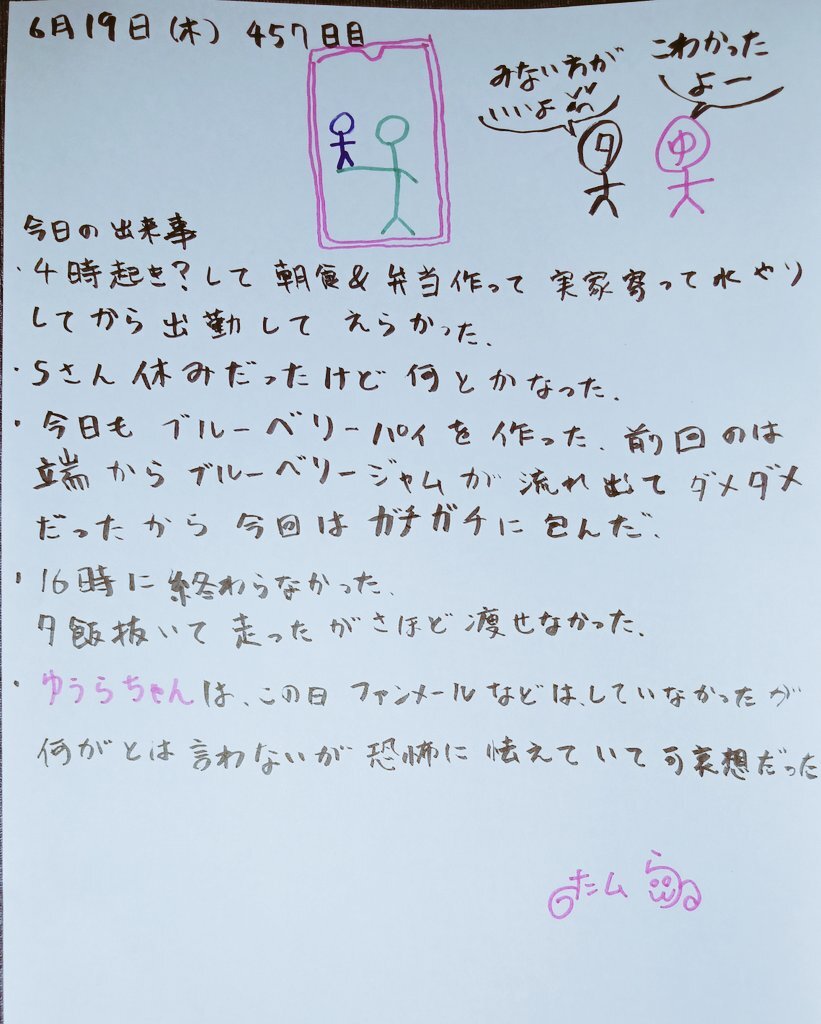 6月19日(木) 457日目
みない方が
いいよ
こわかった
よー
タ
ゆ
今日の出来事
・4時起き?して 朝食&弁当作って 実家寄って水やり
してから出勤して えらかった.
・Sさん休みだったけど 何とかなった.
・今日も ブルーベリーパイを作った. 前回のは
端からブルーベリージャムが流れ出てダメダメ
だったから 今回はガチガチに包んだ.
・16時に終わらなかった.
夕飯抜いて走ったがさほど痩せなかった.
・ゆうらちゃんは、この日 ファンメールなどは、していなかったが
何がとは言わないが恐怖に怯えていて可哀想だった